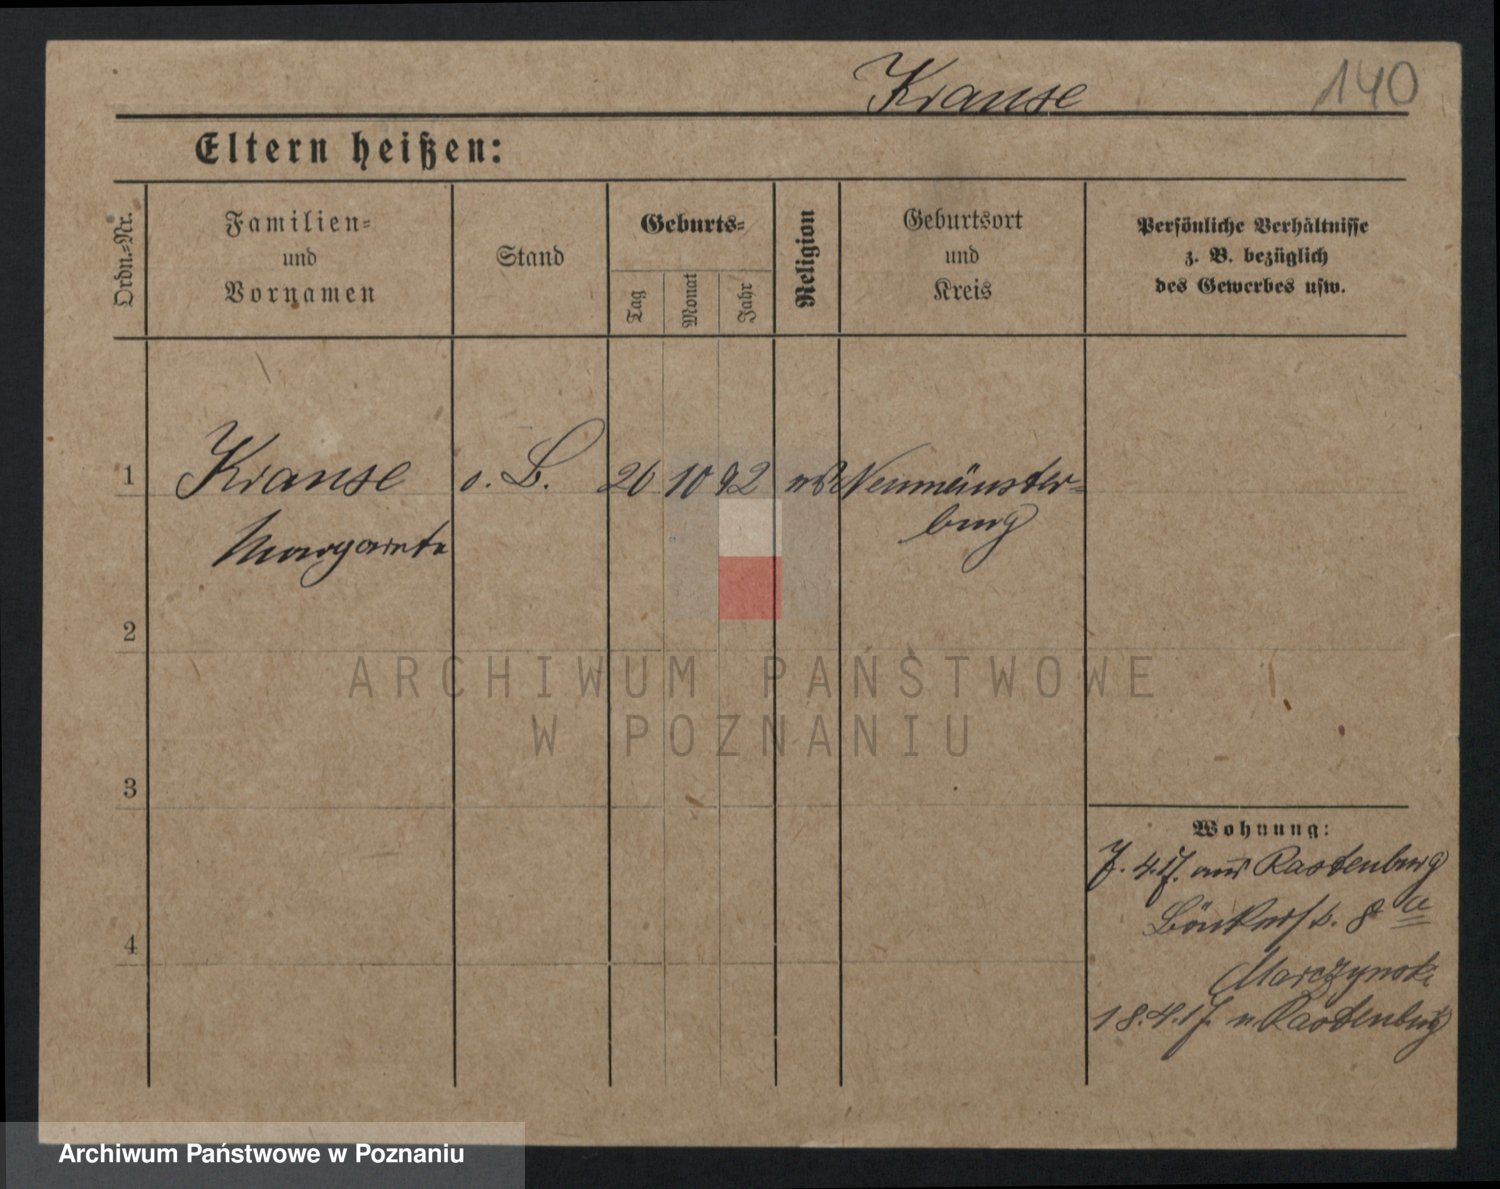 Krause
140
Eltern heißen:
Ordn.-Nr.
Familien-
und
Vornamen
Stand
Geburts-
Tag
Monat
Jahr
Religion
Geburtsort
und
Kreis
Persönliche Verhältnisse
z. B. bezüglich
des Gewerbes usw.
1
Krause o. B. 26 10 92 Neumünster-
burg
Margarete
2
ARCHIWUM PAŃSTWOWE
W POZNANIU
3
Wohnung:
7. 4. 17. aus Rastenburg
8
Marczynski
4
18. 4. 17. n. Rastenburg
Archiwum Państwowe w Poznaniu